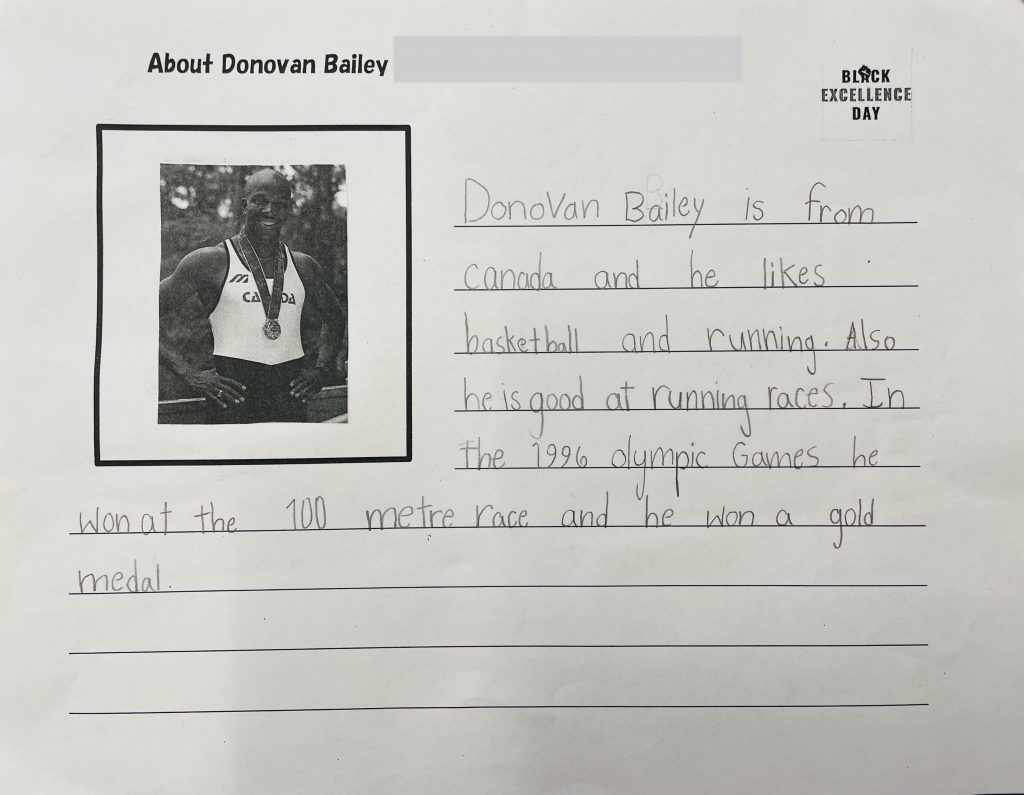 About Donovan Bailey
BLACK
EXCELLENCE
DAY
CANADA
DonoVan Bailey is from
canada and he likes
basketball and running. Also
he is good at running races. In
the 1996 olympic Games he
won at the 100 metre race and he won a gold
medal.